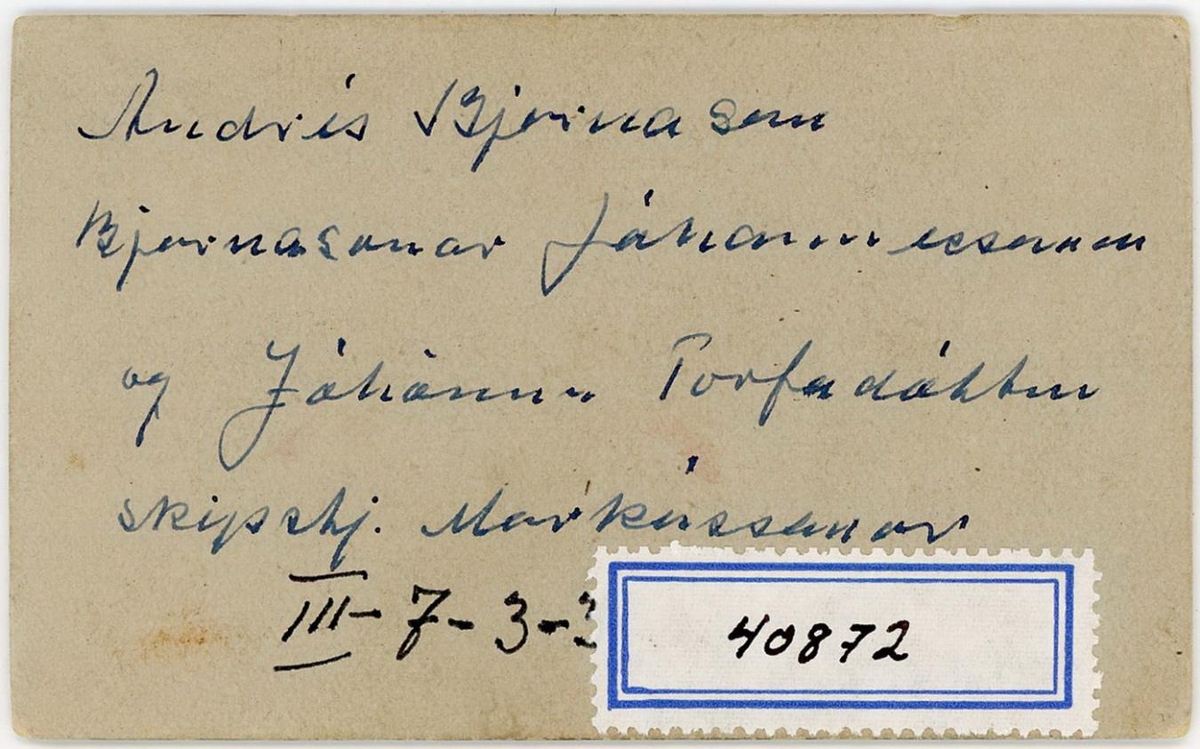 Andrés Bjarnason
Bjarnasonar Jóhannessonar
og Jóhönnu Torfadóttur
skipstj. Markússonar
III-7-3-
40872